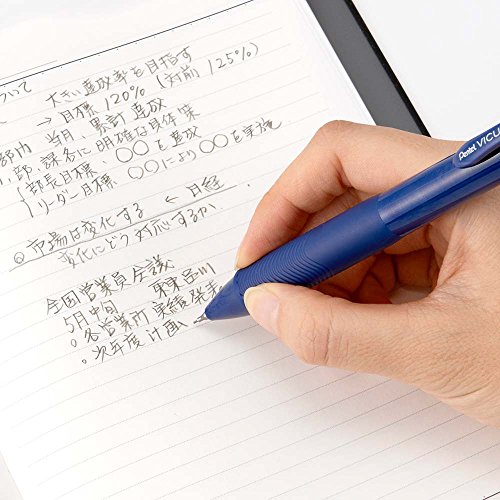 ついて
大きい達成率を目指す
→ 目標 120% (対前 125%)
部内 当月、累計達成
、部、課名に明確な具体策
部長目標、〇〇を達成
リーダー目標 〇〇により〇〇を実施
◎ 市場は変化する ← 日経
変化にどう対応するか、
全国営業員会議
5月中旬 東品川
。各営業所 業績発表
。次年度計画
Pentel VICU